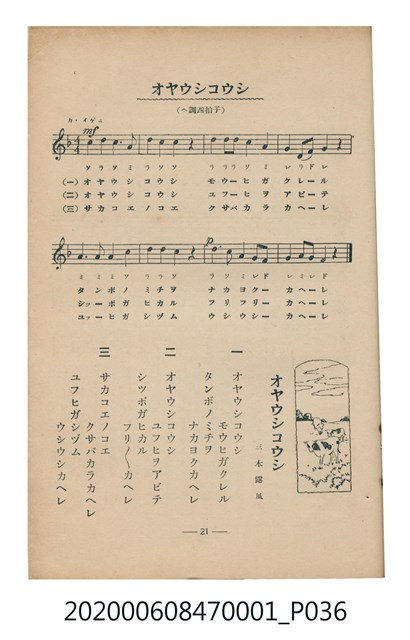 オヤウシコウシ
(ヘ調四拍子)
mf
ソ ラ ソ ミ ラ ソ ソ ラ ラ ラ ソ ミ レ ラ ド レ
(一) オ ヤ ウ シ コ ウ シ モ ウ ー ヒ ガ ク レ ー ル
(二) オ ヤ ウ シ コ ウ シ ユ フ ー ヒ ヲ ア ビ ー テ
(三) サ カ コ エ ノ コ エ ク サ バ カ ラ カ ヘ ー レ
p
タ ン ポ ノ ミ チ ヲ ナ カ ヨ ク ー カ ヘ ー レ
シ ッ ー ポ ガ ヒ カ ル フ リ フ リ ー カ ヘ ー レ
ユ フ ー ヒ ガ シ ヅ ム ウ シ ウ シ ー カ ヘ ー レ
オヤウシコウシ
三木露風
一 オヤウシコウシ
モウヒガクレル
タンボノミチヲ
ナカヨクカヘレ
二 オヤウシコウシ
ユフヒヲアビテ
シツポガヒカル
フリ〱カヘレ
三 サカコエノコエ
クサバカラカヘレ
ユフヒガシヅム
ウシウシカヘレ
— 21 —
202000608470001_P036